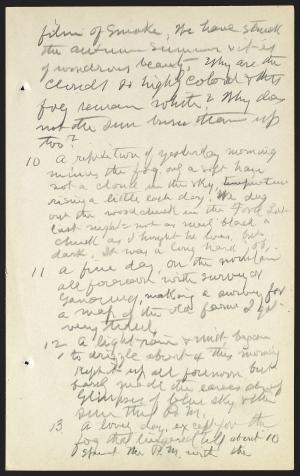 film of smoke. We have struck
the autumn summer &
of wondrous beauty. Why are the
clouds so high colored & this
fog remain white? Why does
not the sun burn them up
too?
10 A repetition of yesterday morning
minus the fog, only a soft haze
not a cloud in the sky, temperature
rising a little each day. We dug
out the woodchuck in the
last night - not as
chuck as I thought he was, but
dark. It was a long hard job.
11 A fine day, on the mountain
all forenoon with surveyor
making a survey for
a map of the old farm. I get
very tired.
12 A light rain & mist began
to drizzle about 4 this morning
kept up all forenoon but
made the eaves drip
Glimpses of blue sky & the
sun this P.M.
13. A lovely day, except for the
fog that lingered till about 10
Spent the P.M. with the